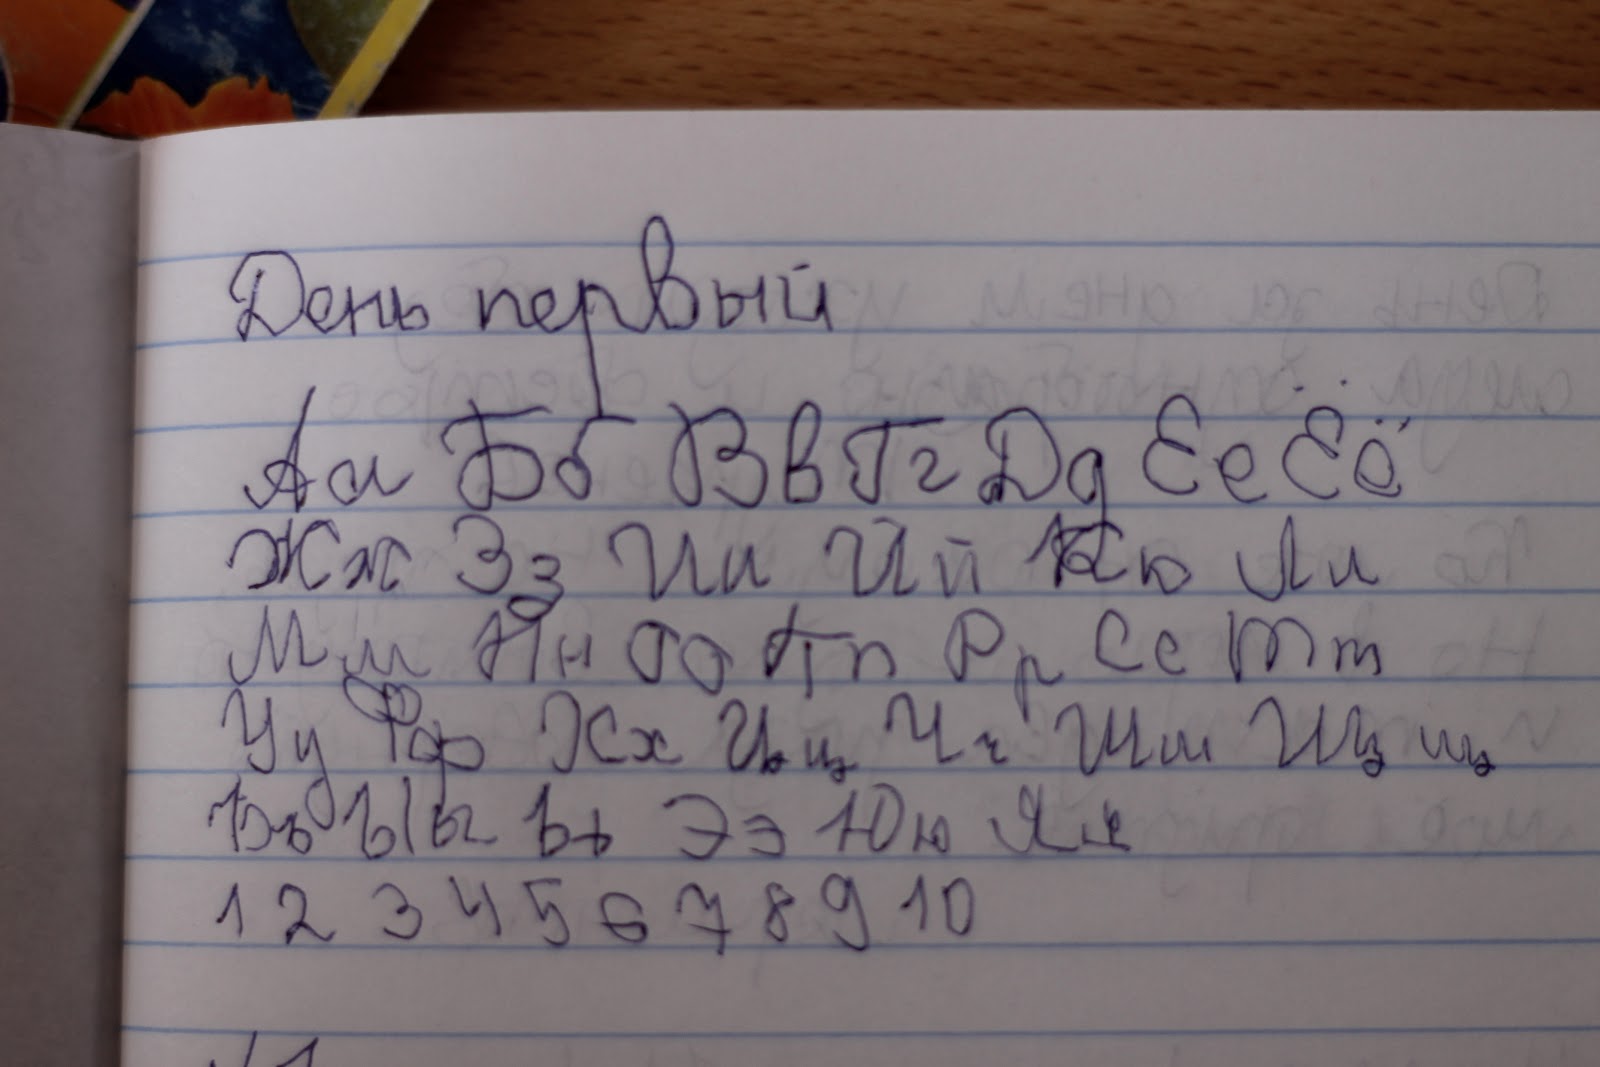 День первый
Аа Бб Вв Гг Дд Ее Ёё
Жж Зз Ии Йй Кк Лл
Мм Нн Оо Пп Рр Сс Тт
Уу Фф Хх Цц Чч Шш Щщ
Ъъ Ыы Ьь Ээ Юю Яя
1 2 3 4 5 6 7 8 9 10